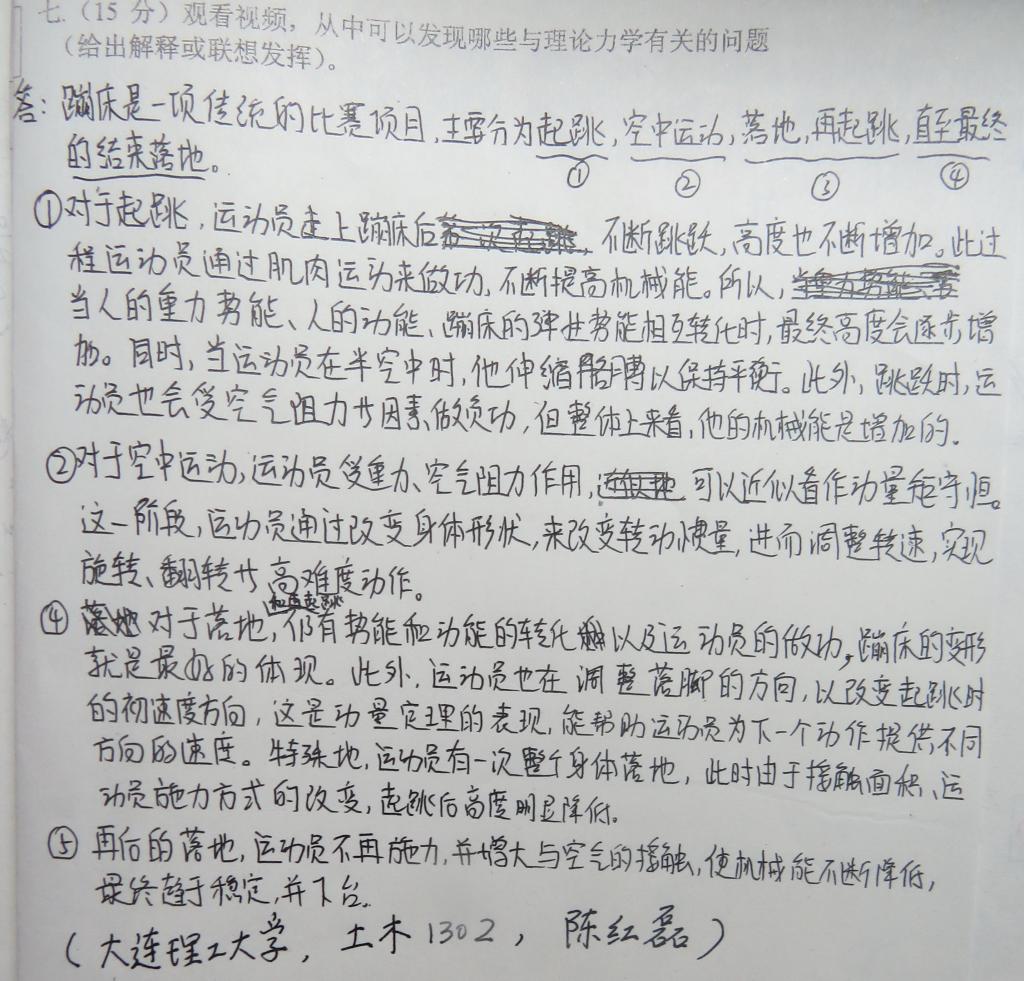 七.(15 分)观看视频，从中可以发现哪些与理论力学有关的问题
(给出解释或联想发挥)。
答：蹦床是一项传统的比赛项目，主要分为起跳，空中运动，落地，再起跳，直至最终
的结束落地。 ① ② ③ ④
①对于起跳，运动员走上蹦床后，不断跳跃，高度也不断增加。此过
程运动员通过肌肉运动来做功，不断提高机械能。所以，
当人的重力势能、人的动能、蹦床的弹性势能相互转化时，最终高度会逐步增
加。同时，当运动员在半空中时，他伸缩胳膊以保持平衡。此外，跳跃时，运
动员也会受空气阻力等因素做负功，但整体上来看，他的机械能是增加的。
②对于空中运动，运动员受重力、空气阻力作用，可以近似看作动量矩守恒。
这一阶段，运动员通过改变身体形状，来改变转动惯量，进而调整转速，实现
旋转、翻转等高难度动作。
④ 对于落地和再起跳，仍有势能和动能的转化以及运动员的做功，蹦床的变形
就是最好的体现。此外，运动员也在调整落脚的方向，以改变起跳时
的初速度方向，这是动量定理的表现，能帮助运动员为下一个动作提供不同
方向的速度。特殊地，运动员有一次整个身体落地，此时由于接触面积、运
动员施力方式的改变，起跳后高度明显降低。
⑤ 再后的落地，运动员不再施力，并增大与空气的接触，使机械能不断降低，
最终趋于稳定，并下台。
(大连理工大学，土木1302，陈红磊)